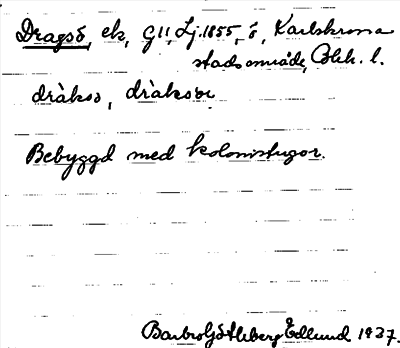 Dragsö, ek, G11, Lj. 1855, ö, Karlskrona
stadsområde, Blek. l.
dràksə, dràksöi
Bebyggd med kolonistugor.
Barbro Edlund 1937.